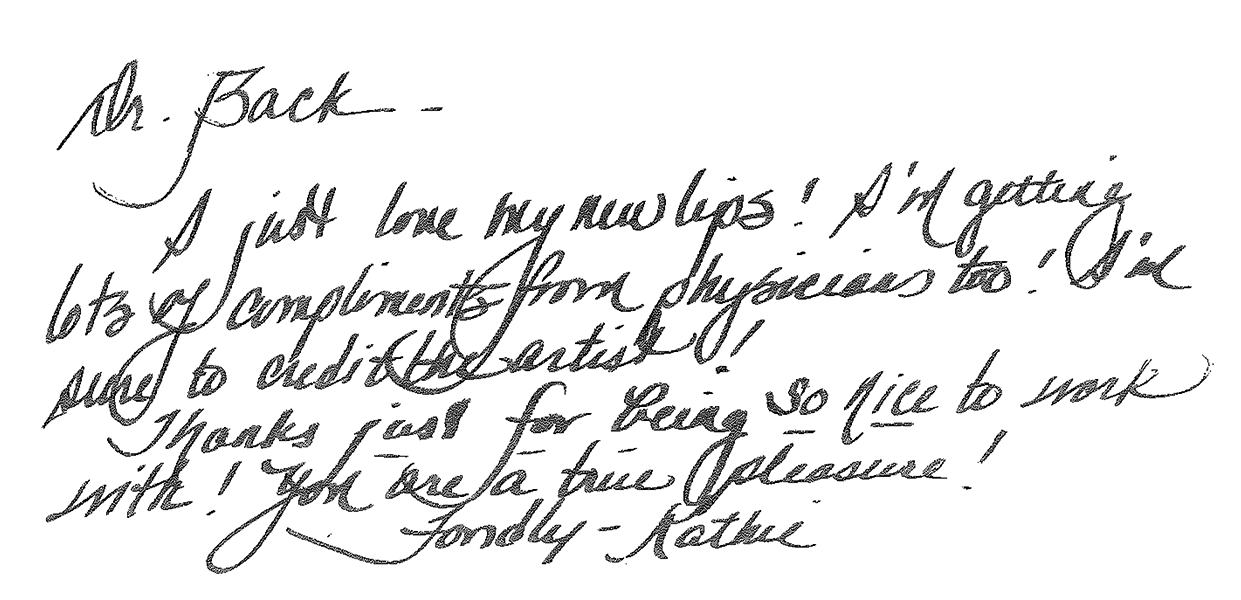 Dr. Back -
I just love my new lips! I'm getting
lots of compliments from physicians too! I'm
sure to credit the artist!
Thanks just for being so nice to work
with! You are a true pleasure!
Fondly - Kathie